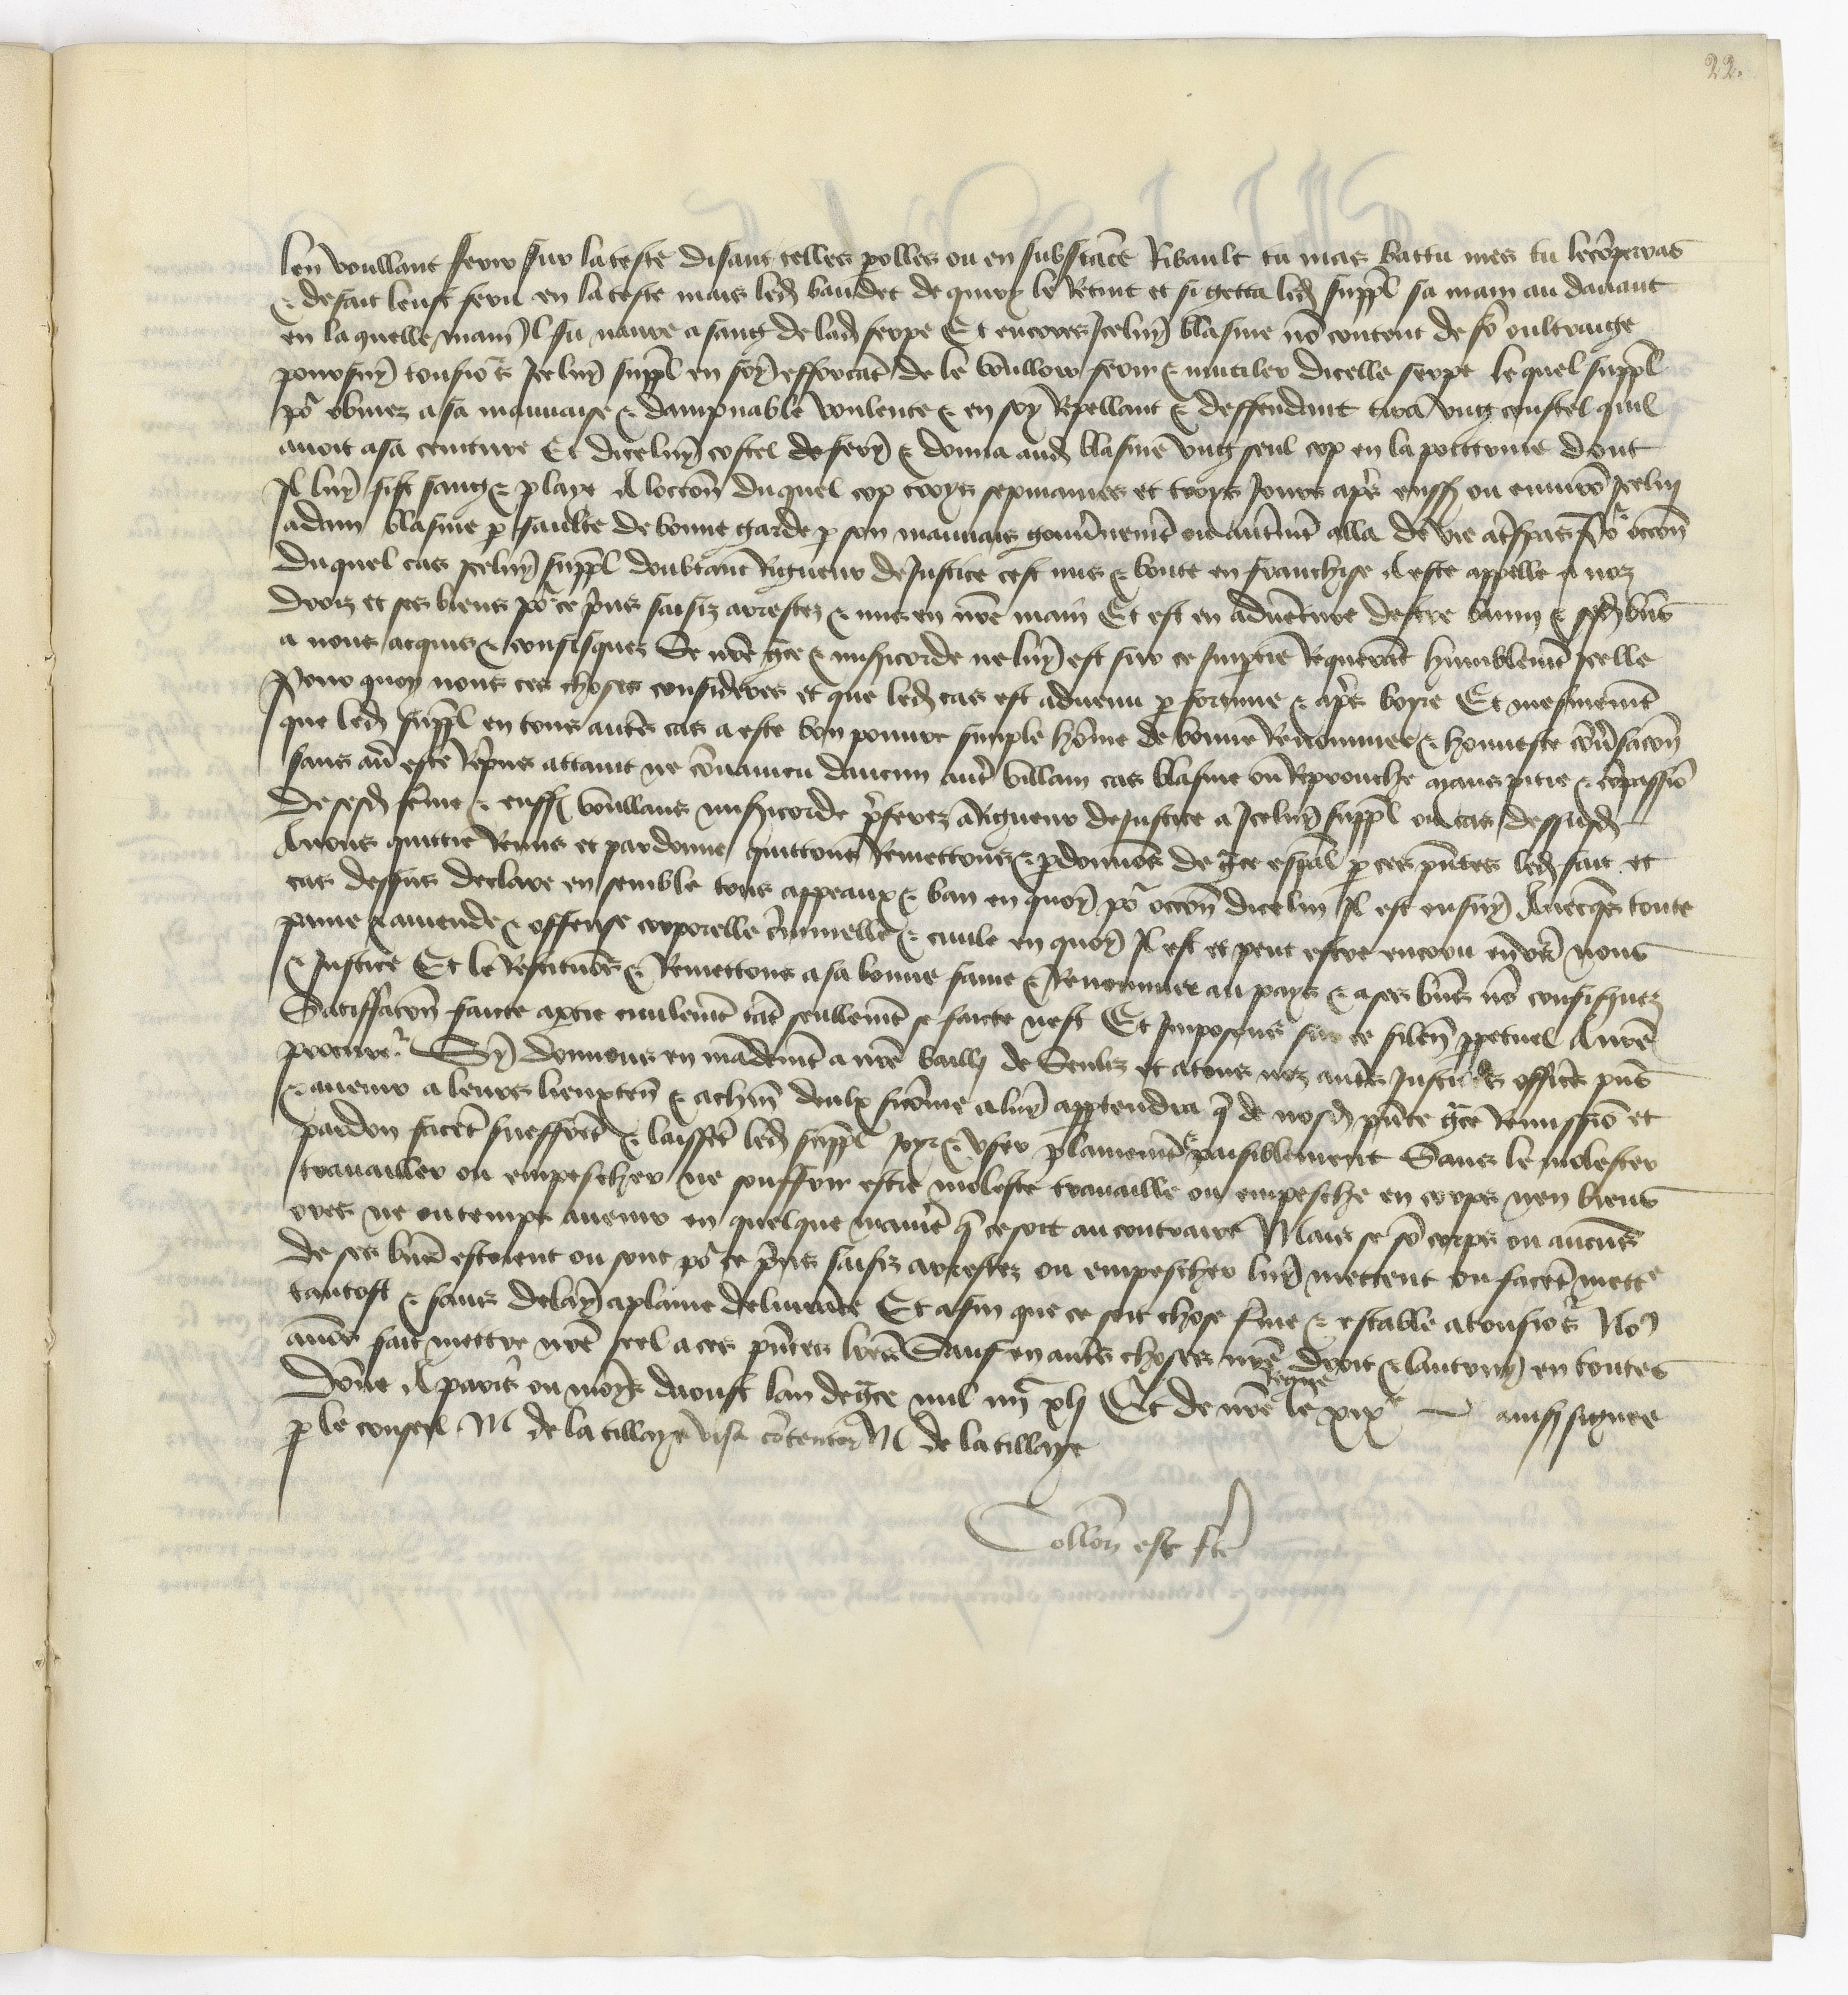 22.
len voullant ferir sur la teste disant telles polles ou en substāce Ribault tu mas battu mes tu le cōperras
& de fait leust feru en la teste mais led baudet de quivy le Retint et si getta led suppl sa main au dauant
en laquelle main Il fu naure a sang de lad serpe Et encores Icelluy blasme nō content de sō oultraige
poursuy tousiors Icelluy suppl en soy efforcāt de le voulloir ferir & mutiler dicelle serpe lequel suppl
por obuiez a sa mauuaise & dampnable voulente & en soy Repellant & deffendant tira vng coustel quil
auoit a sa ceinture Et dicelluy costel defery & donna aud blasme vng seul cop en la poictrine dont
Il luy fist sang & playe A loccōn duquel cop troys sepmaines et troys Jours apres enss ou enuirō Icelluy
adam blasme p faulte de bonne garde p son mauuais gouunemēt ou autmēt alla de vie a trespas Por occōn
duquel cas Icelluy suppl doubtant Rigueur de Justice cest mis & boute en franchise A este appelle a noz
droiz et ses biens por ce prins saisiz arrestez & mis en nre main Et est en aduēture destre banny & sesd biēs
a nous acquis & confisquez Se nre grce & misicorde ne luy est sur ce impartie Requerāt humblemēt Icelle
Pour quoy nous ces choses considerees et que led cas est aduenu p fortune & apres boyre Et mesmemēt
que led suppl en tous autēs cas a este bon pouure simple hōme de bonne Renommee & honneste cōuersacōn
sans auoir este Reprins attaint ne cōuaincu daucun autre villain cas blasme ou Reprouche ayans pitie & cōpassiō
de sesd fēme & enff voullans misicorde preferez a Rigueur de Justice a Icelluy suppl ou cas dessusd
Auons quittie Remis et pardonne quittons Remettons & pdonnōs de grce espāl p ces pntes led fait et
cas dessus declare ensemble tous appeaux & ban en quoy por occōn dicelluy Il est ensuy Auecques toute
paine & amende & offense corporelle criminelle & ciuile en quoy Il est et peut estre encouru enuers nous
& Justice Et le Restituōs & Remettons a sa bonne fame & Renommee au pays & a ses biēs nō confisquez
Satisfacōn faicte a partie ciuilemēt tāt seullemēt se faicte nest Et Imposons sur ce silence ppetuel A nre
procurer Sy donnons en mādemēt a nre bailly de Senliz et a tous noz autēs Justiciers officēs pñs
& auenir a leurs lieuxtēn & a chun deulx sicōme a luy apptendra q de nosd pñte grce Remissiō et
pardon facēt sueffrēt & laissēt led suppl Joyr & vser plainemēt & paisiblement Sans le molester
trauailler ou empescher ne souffrir estre moleste trauaille ou empesche en corps nen biens
ores ne ou temps auenir en quelque maniē q ce soit au contraire Mais se sō corps ou aucuns
de ses biēs estoient ou sont por ce prins saisiz arrestez ou empeschez luy mettent ou facēt mettre
tantost & sans delay a plaine deliurāce Et afin que ce soit chose ferme & estable a tousiors No9
auōs fait mettre nre scel a ces pñtes lrēs Sauf en autēs choses nre droit & lautruy en toutes
Dōne A paris ou moys daoust lan de grce mil iiiic xlj Et de nre Regne le xixe ainsi signee
p le conseil M de la tillaye visa cōtentor M de la tillaye
Collōn est fte